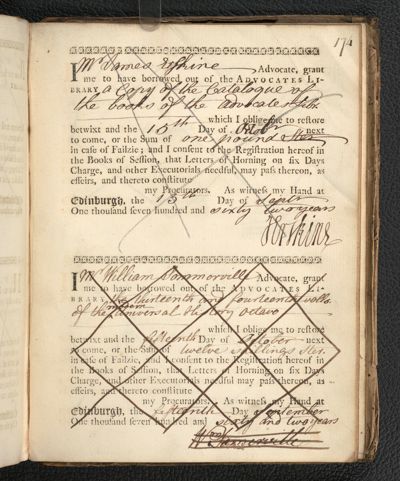 171
I Mr James Erskine Advocate, grant
me to have borrowed out of the ADVOCATES LI-
BRARY a Copy of the Catalogue of
the books of the advocates Libr
which I oblige me to restore
betwixt and the 15th Day of Octobr next
to come, or the Sum of one pound Ster
in case of Failzie; and I consent to the Registration hereof in
the Books of Session, that Letters of Horning on six Days
Charge, and other Executorials needful, may pass thereon, as
effeirs, and thereto constitute
my Procurators. As witness my Hand at
Edinburgh, the 15th Day of Septr
One thousand seven hundred and sixty two years
J Erskine
I Mr William Sommerville Advocate, grant
me to have borrowed out of the ADVOCATES LI-
BRARY, the thirteenth and fourteenth vols
of the universal History octavo
which I oblige me to restore
betwixt and the fifteenth Day of October next
to come, or the Sum of twelve shillings Ster.
in case of Failzie, and I consent to the Registration hereof in
the Books of Session, that Letters of Horning on six Days
Charge, and other Executorials needful may pass thereon, as
effeirs, and thereto constitute
my Procurators. As witness my Hand at
Edinburgh, the Day of September
One thousand seven hundred and sixty and two years